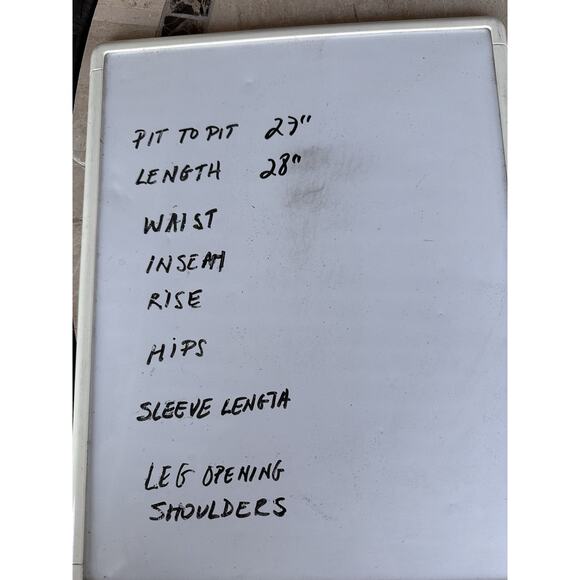 PIT TO PIT 27"
LENGTH 28"
WAIST
INSEAM
RISE
HIPS
SLEEVE LENGTH
LEG OPENING
SHOULDERS